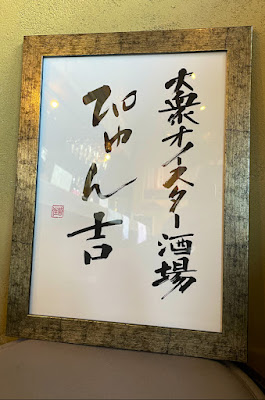 大衆オイスター酒場
ぴゅん吉